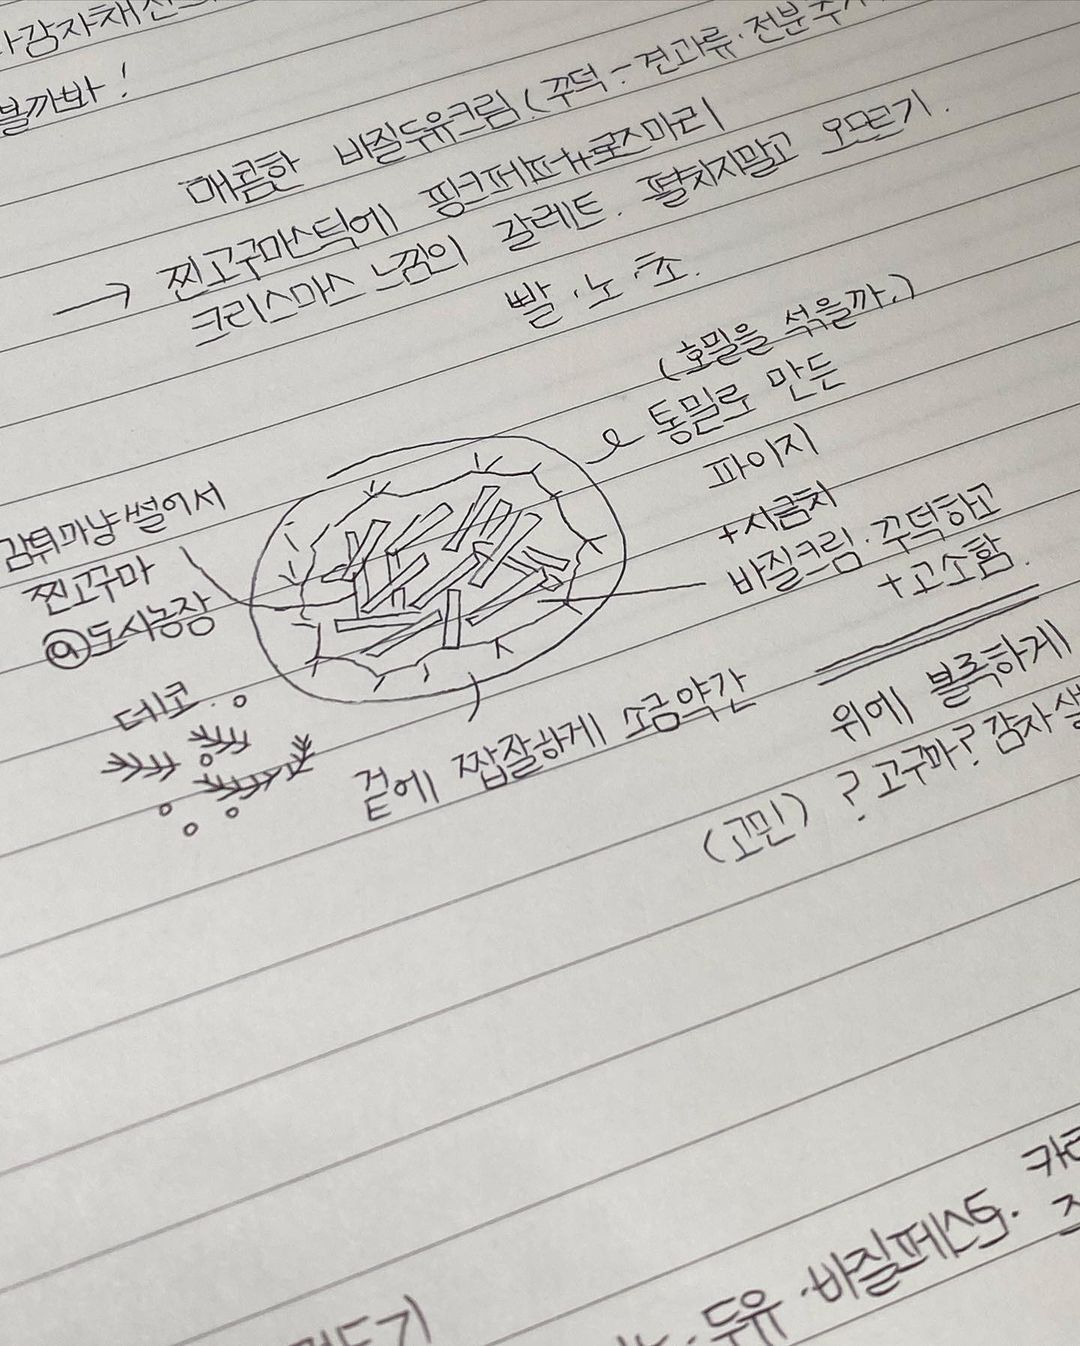 감자채전
볼까봐!
매콤한 바질두유크림.(꾸덕-견과류.전분추가
→ 찐고구마스틱에 핑크페퍼+로즈마리
크리스마스 느낌의 갈레트. 펼치지말고 오므르기.
빨.노.초.
(호밀을 섞을까.)
통밀로 만든
파이지
+시금치
바질크림.꾸덕하고
+고소함.
감튀마냥썰어서
찐고꾸마
@도시농장
데코.
겉에 짭잘하게 소금약간
위에 볼록하게
(고민) ? 고구마? 감자생
카
두유.바질페스토.